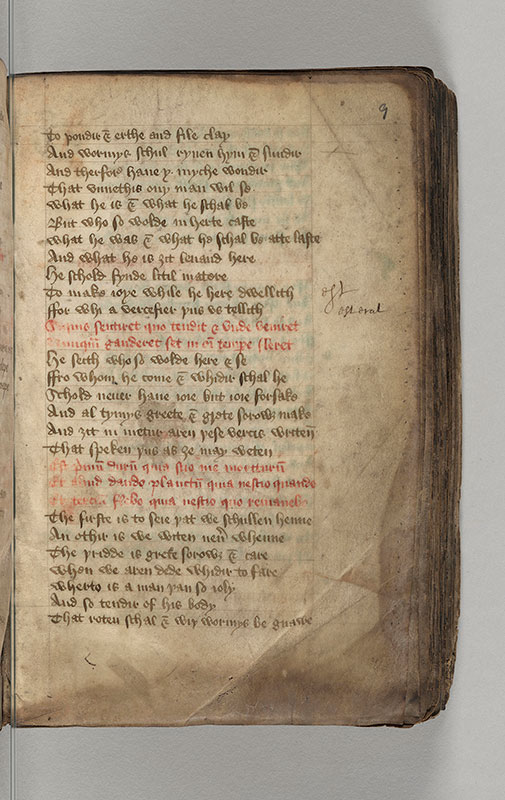 9
To poudir & erthe and file clay
And wormys schul ryuen hym & sundir
And therfore haue y myche wondir
That vnnethis ony man wil se
what he is & what he schal be
But who so wolde in herte caste
what he was & what he schal be atte laste
And what he is ȝit leuand here
He schold fynde litil matere
To make ioye while he here dwellith
ffor whi a versefier þus vs tellith
sentiret quo tendit & vnde veniret
gauderet set in oī tempe fleret
He seith who so wolde here & se
ffro whom he come & whidir schal he
Schold neuer haue ioie but ioie forsake
And al tymys greete & grete sorowȝ make
And ȝit in metur aren þese vercis writen
That speken þus as ȝe may weten
Est pimū durū quia scio me moriturū
Et aliud dando planctū quia nescio quando
flebo quia nescio quo remanebo
The firste is to seie þat we schullen henne
An othir is we witen neū whenne
The þridde is grete sorowȝ & care
when we aren dede whidir to fare
wherto is a man þan so ioly
And so tendir of his body
That roten schal & wiþ wormys be gnawe
est
est erat